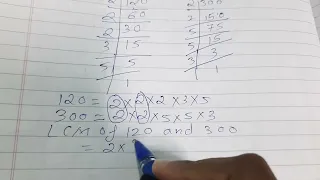 2 120 2 300
2 60 2 150
2 30 5 75
3 15 5 15
5 5 3 3
1 1
120 = 2 × 2 × 2 × 3 × 5
300 = 2 × 2 × 5 × 5 × 3
LCM of 120 and 300
= 2 ×